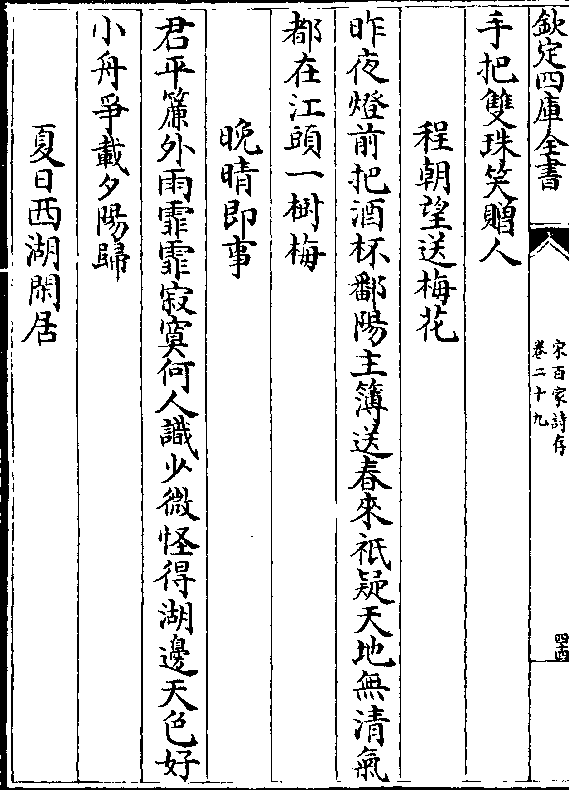 欽定四庫全書
宋百家詩存
卷二十九
手把雙珠笑贈人
程朝望送梅花
昨夜燈前把酒杯鄱陽主簿送春來祇疑天地無清氣
都在江頭一樹梅
晚晴即事
君平簾外雨霏霏寂寞何人識少微怪得湖邊天色好
小舟爭載夕陽歸
夏日西湖閑居